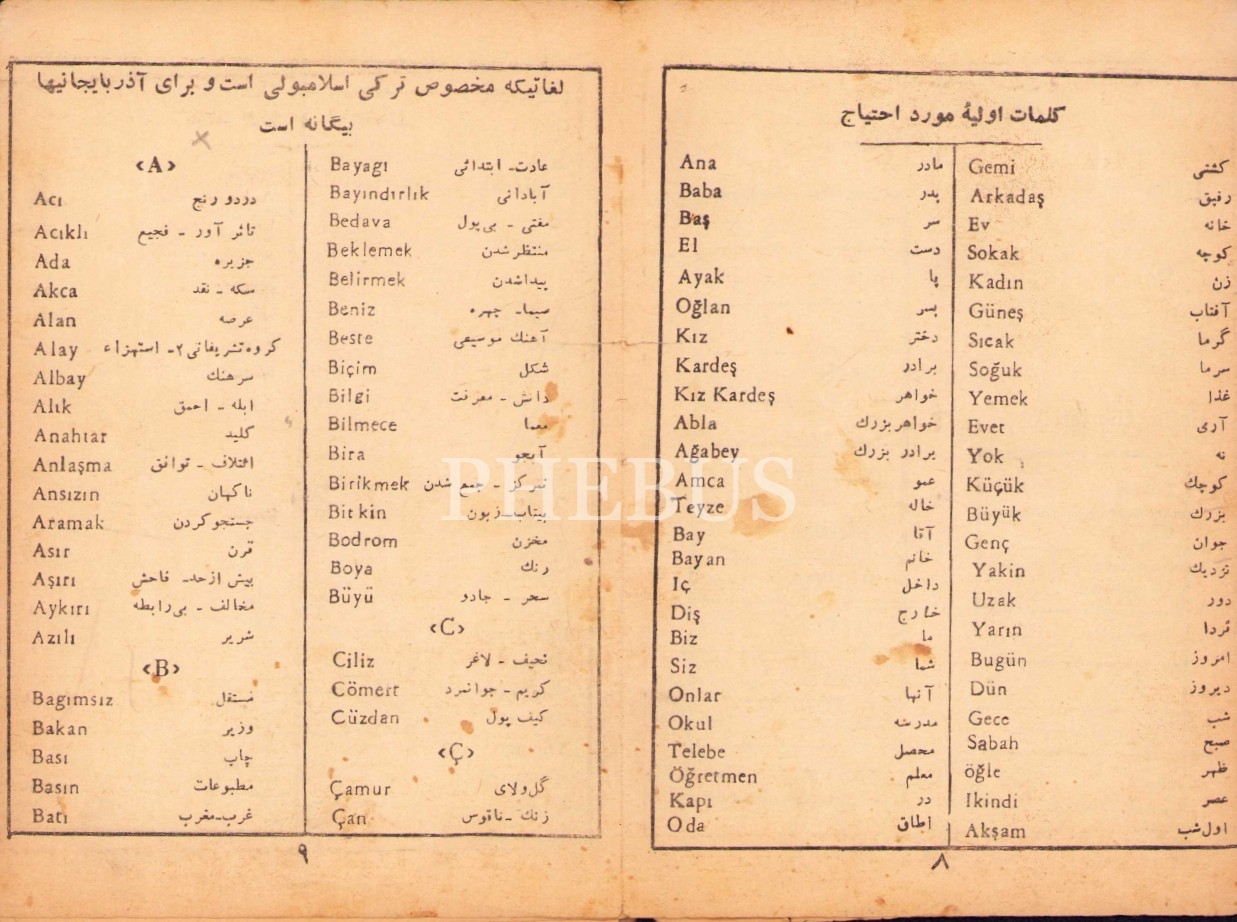 کلمات اولیهٔ مورد احتیاج
Ana مادر
Baba پدر
Baş سر
El دست
Ayak پا
Oğlan پسر
Kız دختر
Kardeş برادر
Kız Kardeş خواهر
Abla خواهر بزرك
Ağabey برادر بزرك
Amca عمو
Teyze خاله
Bay آقا
Bayan خانم
Iç داخل
Diş خارج
Biz ما
Siz شما
Onlar آنها
Okul مدرسه
Telebe محصل
Öğretmen معلم
Kapı در
Oda اطاق
Gemi کشتی
Arkadaş رفیق
Ev خانه
Sokak کوچه
Kadın زن
Güneş آفتاب
Sıcak گرما
Soğuk سرما
Yemek غذا
Evet آری
Yok نه
Küçük کوچك
Büyük بزرك
Genç جوان
Yakin نزدیك
Uzak دور
Yarın فردا
Bugün امروز
Dün دیروز
Gece شب
Sabah صبح
öğle ظهر
Ikindi عصر
Akşam اول شب
۸
لغاتیکه مخصوص ترکی اسلامبولی است و برای آذربایجانیها
بیگانه است
‹A›
Acı دردو رنج
Acıklı تاثر آور - فجیع
Ada جزیره
Akca سکه - نقد
Alan عرصه
Alay گروه تشریفاتی ۲- استهزاء
Albay سرهنك
Alık ابله - احمق
Anahtar کلید
Anlaşma ائتلاف - توافق
Ansızın ناگهان
Aramak جستجو کردن
Asır قرن
Aşırı بیش ازحد- فاحش
Aykırı مخالف - بی رابطه
Azılı شریر
‹B›
Bagımsız مستقل
Bakan وزیر
Bası چاپ
Basın مطبوعات
Batı غرب-مغرب
Bayagı عادت- ابتدائی
Bayındırlık آبادانی
Bedava مفتی - بی پول
Beklemek منتظر شدن
Belirmek پیداشدن
Beniz سیما- چهره
Beste آهنك موسیقی
Biçim شکل
Bilgi دانش - معرفت
Bilmece معما
Bira آبجو
Birikmek تمرکز - جمع شدن
Bitkin بیتاب-زبون
Bodrom مخزن
Boya رنك
Büyü سحر - جادو
‹C›
Ciliz نحیف - لاغر
Cömert کریم - جوانمرد
Cüzdan کیف پول
‹Ç›
Çamur گل ولای
Çan زنك -ناقوس
۹
PHEBUS